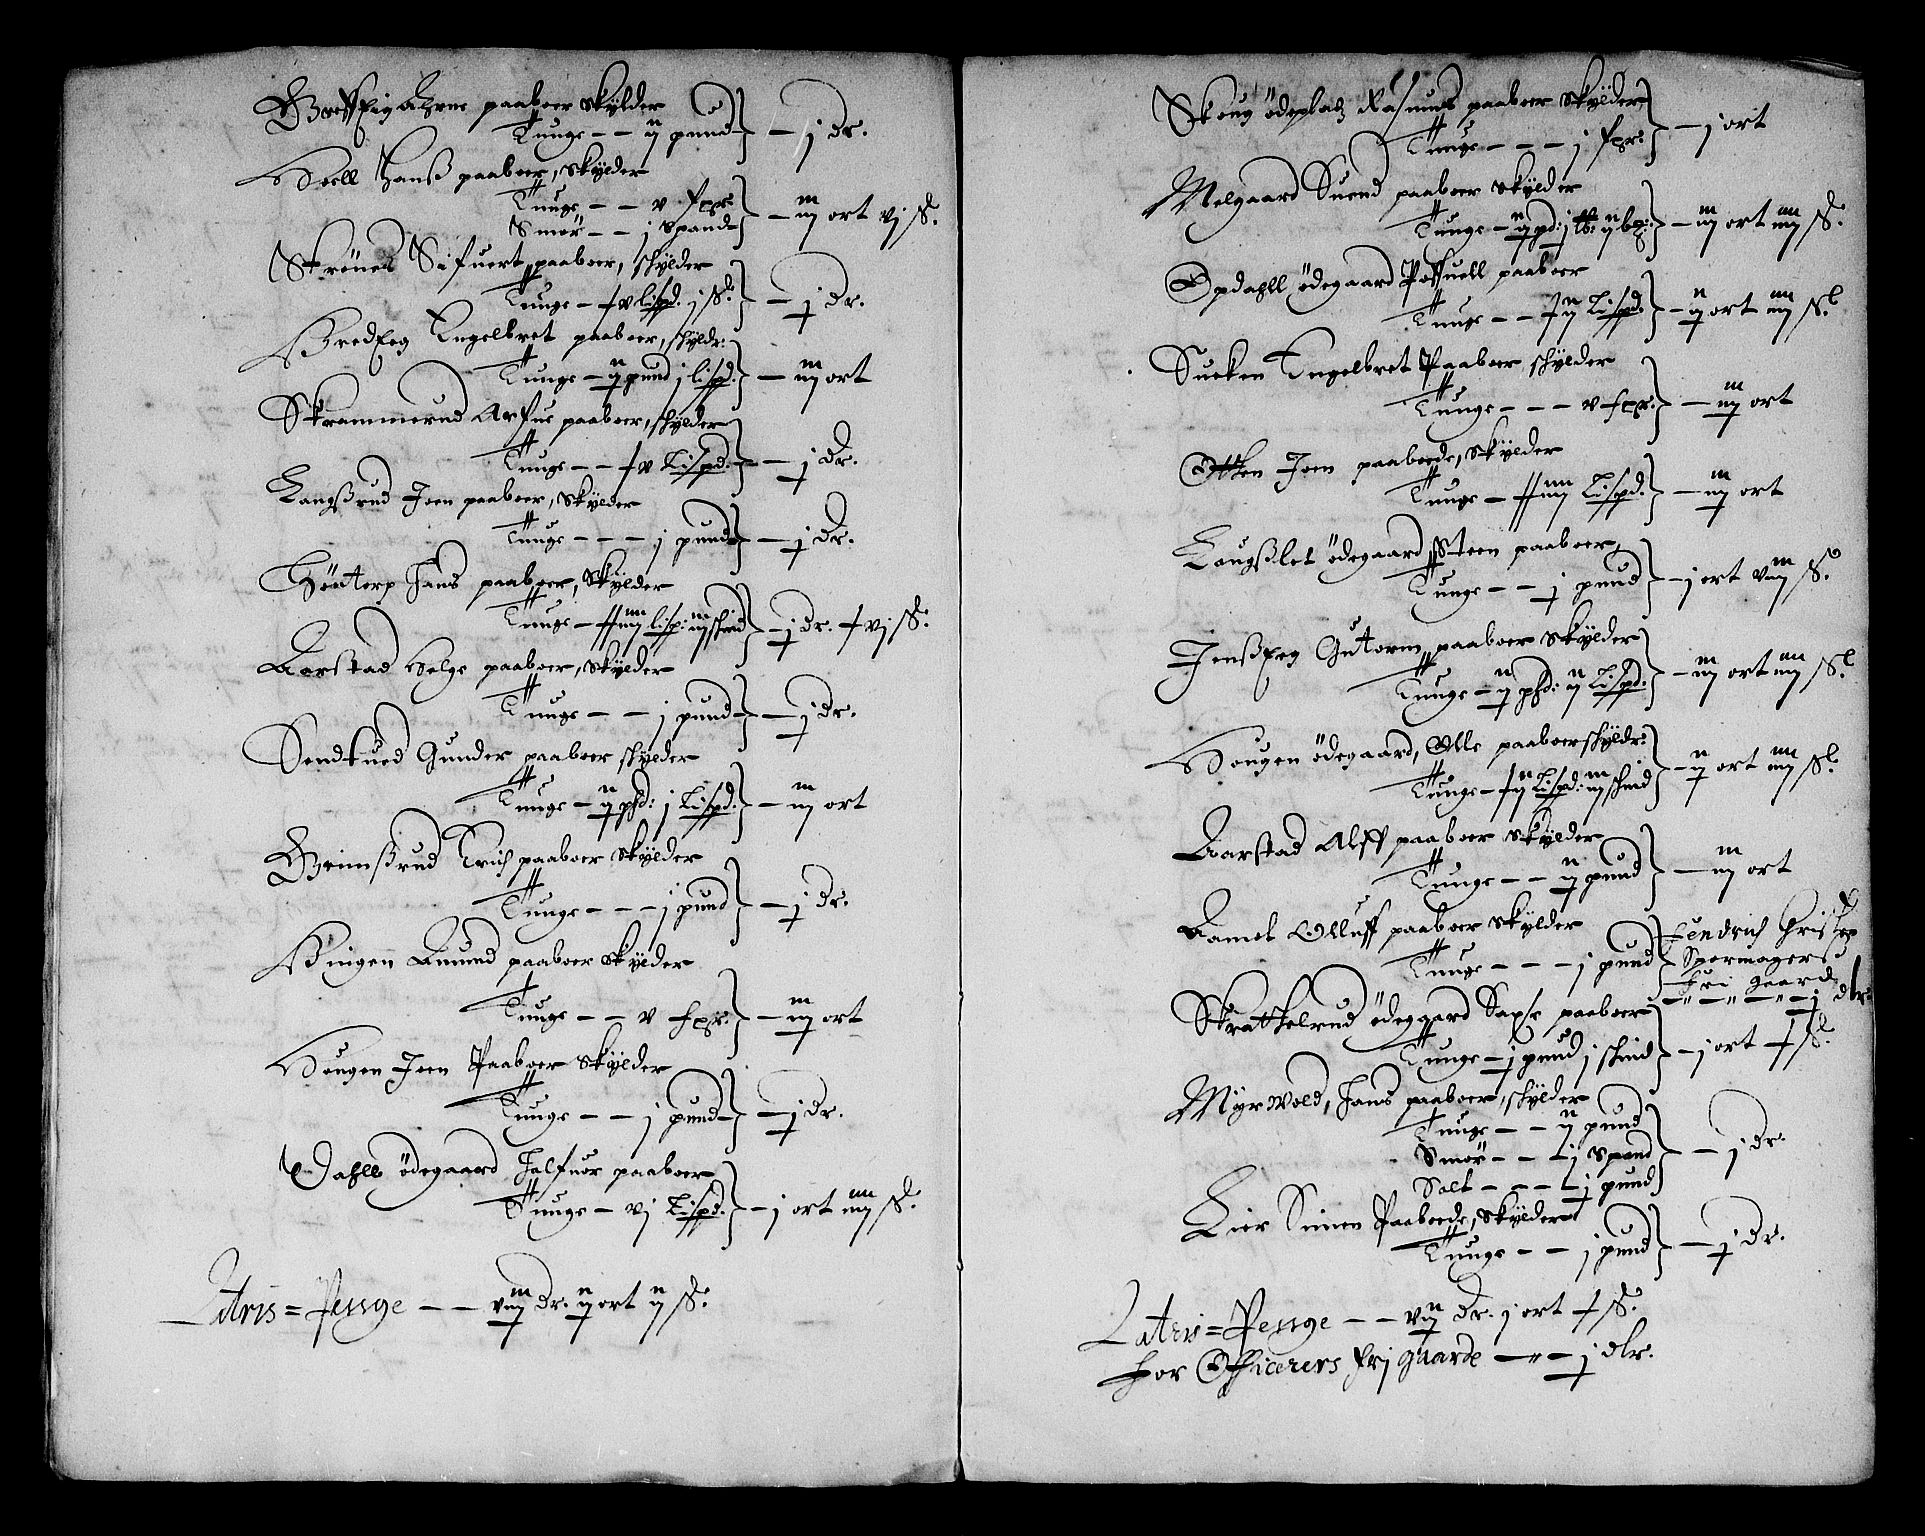 Arne paaboer skylder
Tunge – – ij pund – j dr.
Hoell Hanß paaboer, skylder
Tunge – – v fgr.
Smör – – j spand – iij ort vj sl.
Strönes Sifuert paaboer, skylder
Tunge – ½ v lispd. j sl. – j dr.
Engelbret paaboer, skyldr:
Tunge – ij pund j lispd. – iij ort
Skrammerud Arfue paaboer, skylder
Tunge – – ½ v Lispd. – j dr.
Langßrud Joen paaboer, skylder
Tunge – – – j pund – j dr.
Hans paaboer, skylder
Tunge – iiij lisp: iij skind – j dr. ½ vj sl.
Aarstad Helge paaboer, skylder
Tunge – – j pund – j dr.
Gunder paaboer skylder
Tunge – ij pd: j Lispd. – iij ort
Grimßrud Erich paaboer skylder
Tunge – – – j pund – j dr.
Bingen Amund paaboer skylder
Tunge – – v fgr. – iij ort
Hougen Joen Paaboer skylder
Tunge – – j pund – j dr.
Dahll ödegaard Halfuor paaboer
Tunge – vj Lispd. – j ort iiij sl.
Latris = Penge – – viij dr. ij ort ij sl.
Skoug ödeplatz Rasmus paaboer skylder
Tunge – – – j fgr. – j ort
Melgaard Suend paaboer skylder
Tunge – ij pd: – iij ort iiij sl.
Opdahll ödegaard Poffuell paaboer
Tunge – – ½ ij Lispd. – ij ort iiij sl.
Engelbret Paaboer skylder
Tunge – – – v fgr. – iij ort
Joen paaboede, skylder
Tunge – iiij Lispd. – iij ort
Langßlet ödegaard Steen paaboer,
Tunge – – j pund – j ort viij sl.
Jenßeg Gutorm paaboer skylder
Tunge – ij pd: ij Lispd. – iij ort iiij sl.
Hougen ödegaard, Olle paaboer skyldr:
Tunge – ½ ij Lispd: iij skind – ij ort iiij sl.
Aarstad Alff paaboer skylder
Tunge – – ij pund – iij ort
Aamot Olluff paaboer skylder
Tunge – – – j pund
Fendrich Christop
Spormagers
fri gaard
– „ – „ – „ – j dlr.
Skrattelrud ödegaard Saxe paaboer
Tunge – j pund j skind – j ort ½ sl.
Myrwold, Hans paaboer, skylder
Tunge – – ij pund
Smör – – – j spand – j dr.
Salt – – – j pund
Lier Simen Paaboede, skylder
Tunge – – j pund – j dr.
Latris = Penge – – vij dr. j ort ½ sl.
for Officerers frj gaarde – „ – j dlr.